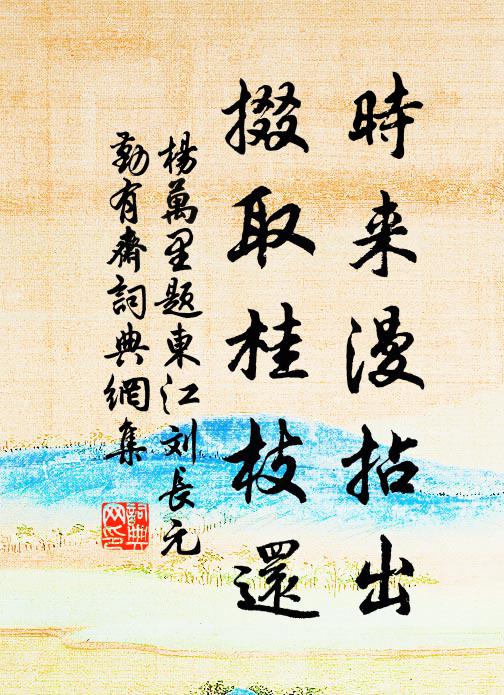 時来漫拈出
掇取桂枝還
楊萬里题東江刘長元
勤有齋詞典網集
詞典